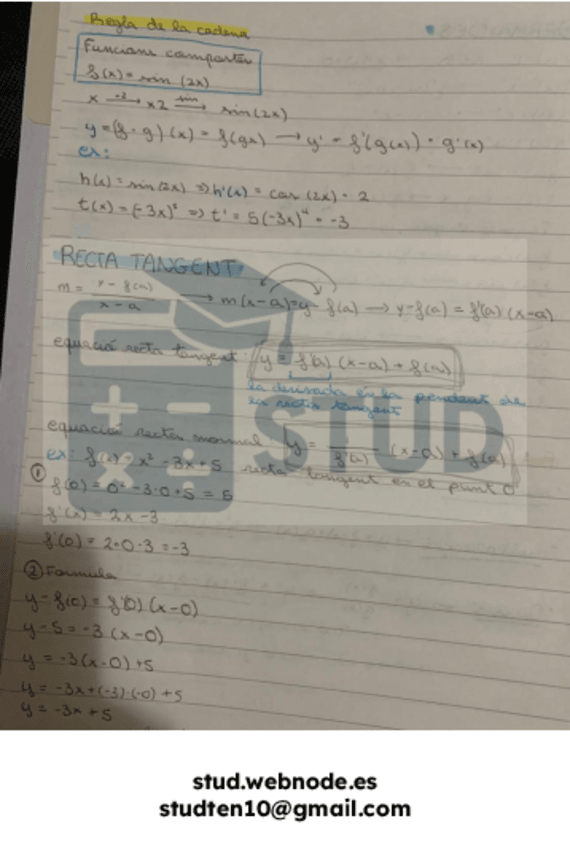 Regla de la cadena
Funcions compostes
f(x) = sin (2x)
x →·2 x2 →sin sin(2x)
y = (f · g) (x) = f(gx) → y' = f'(g(x)) · g'(x)
ex:
h(x) = sin(2x) => h'(x) = cos (2x) · 2
t(x) = (-3x)⁵ => t' = 5(-3x)⁴ · -3
RECTA TANGENT
m = y - f(a) / x - a → m(x-a) = y - f(a) → y - f(a) = f'(a) (x-a)
equació recta tangent: y = f'(a) (x-a) + f(a)
la derivada és la pendent de
la recta tangent
equació recta normal: y = / f'(a) (x-a) + f(a)
ex: f(x) = x² - 3x + 5 recta tangent en el punt 0
① f(0) = 0² - 3·0 + 5 = 5
f'(x) = 2x - 3
f'(0) = 2·0 - 3 = -3
② Formula
y - f(0) = f'(0) (x-0)
y - 5 = -3 (x-0)
y = -3(x-0) + 5
y = -3x + (-3)·(-0) + 5
y = -3x + 5
STUD
stud.webnode.es
studten10@gmail.com